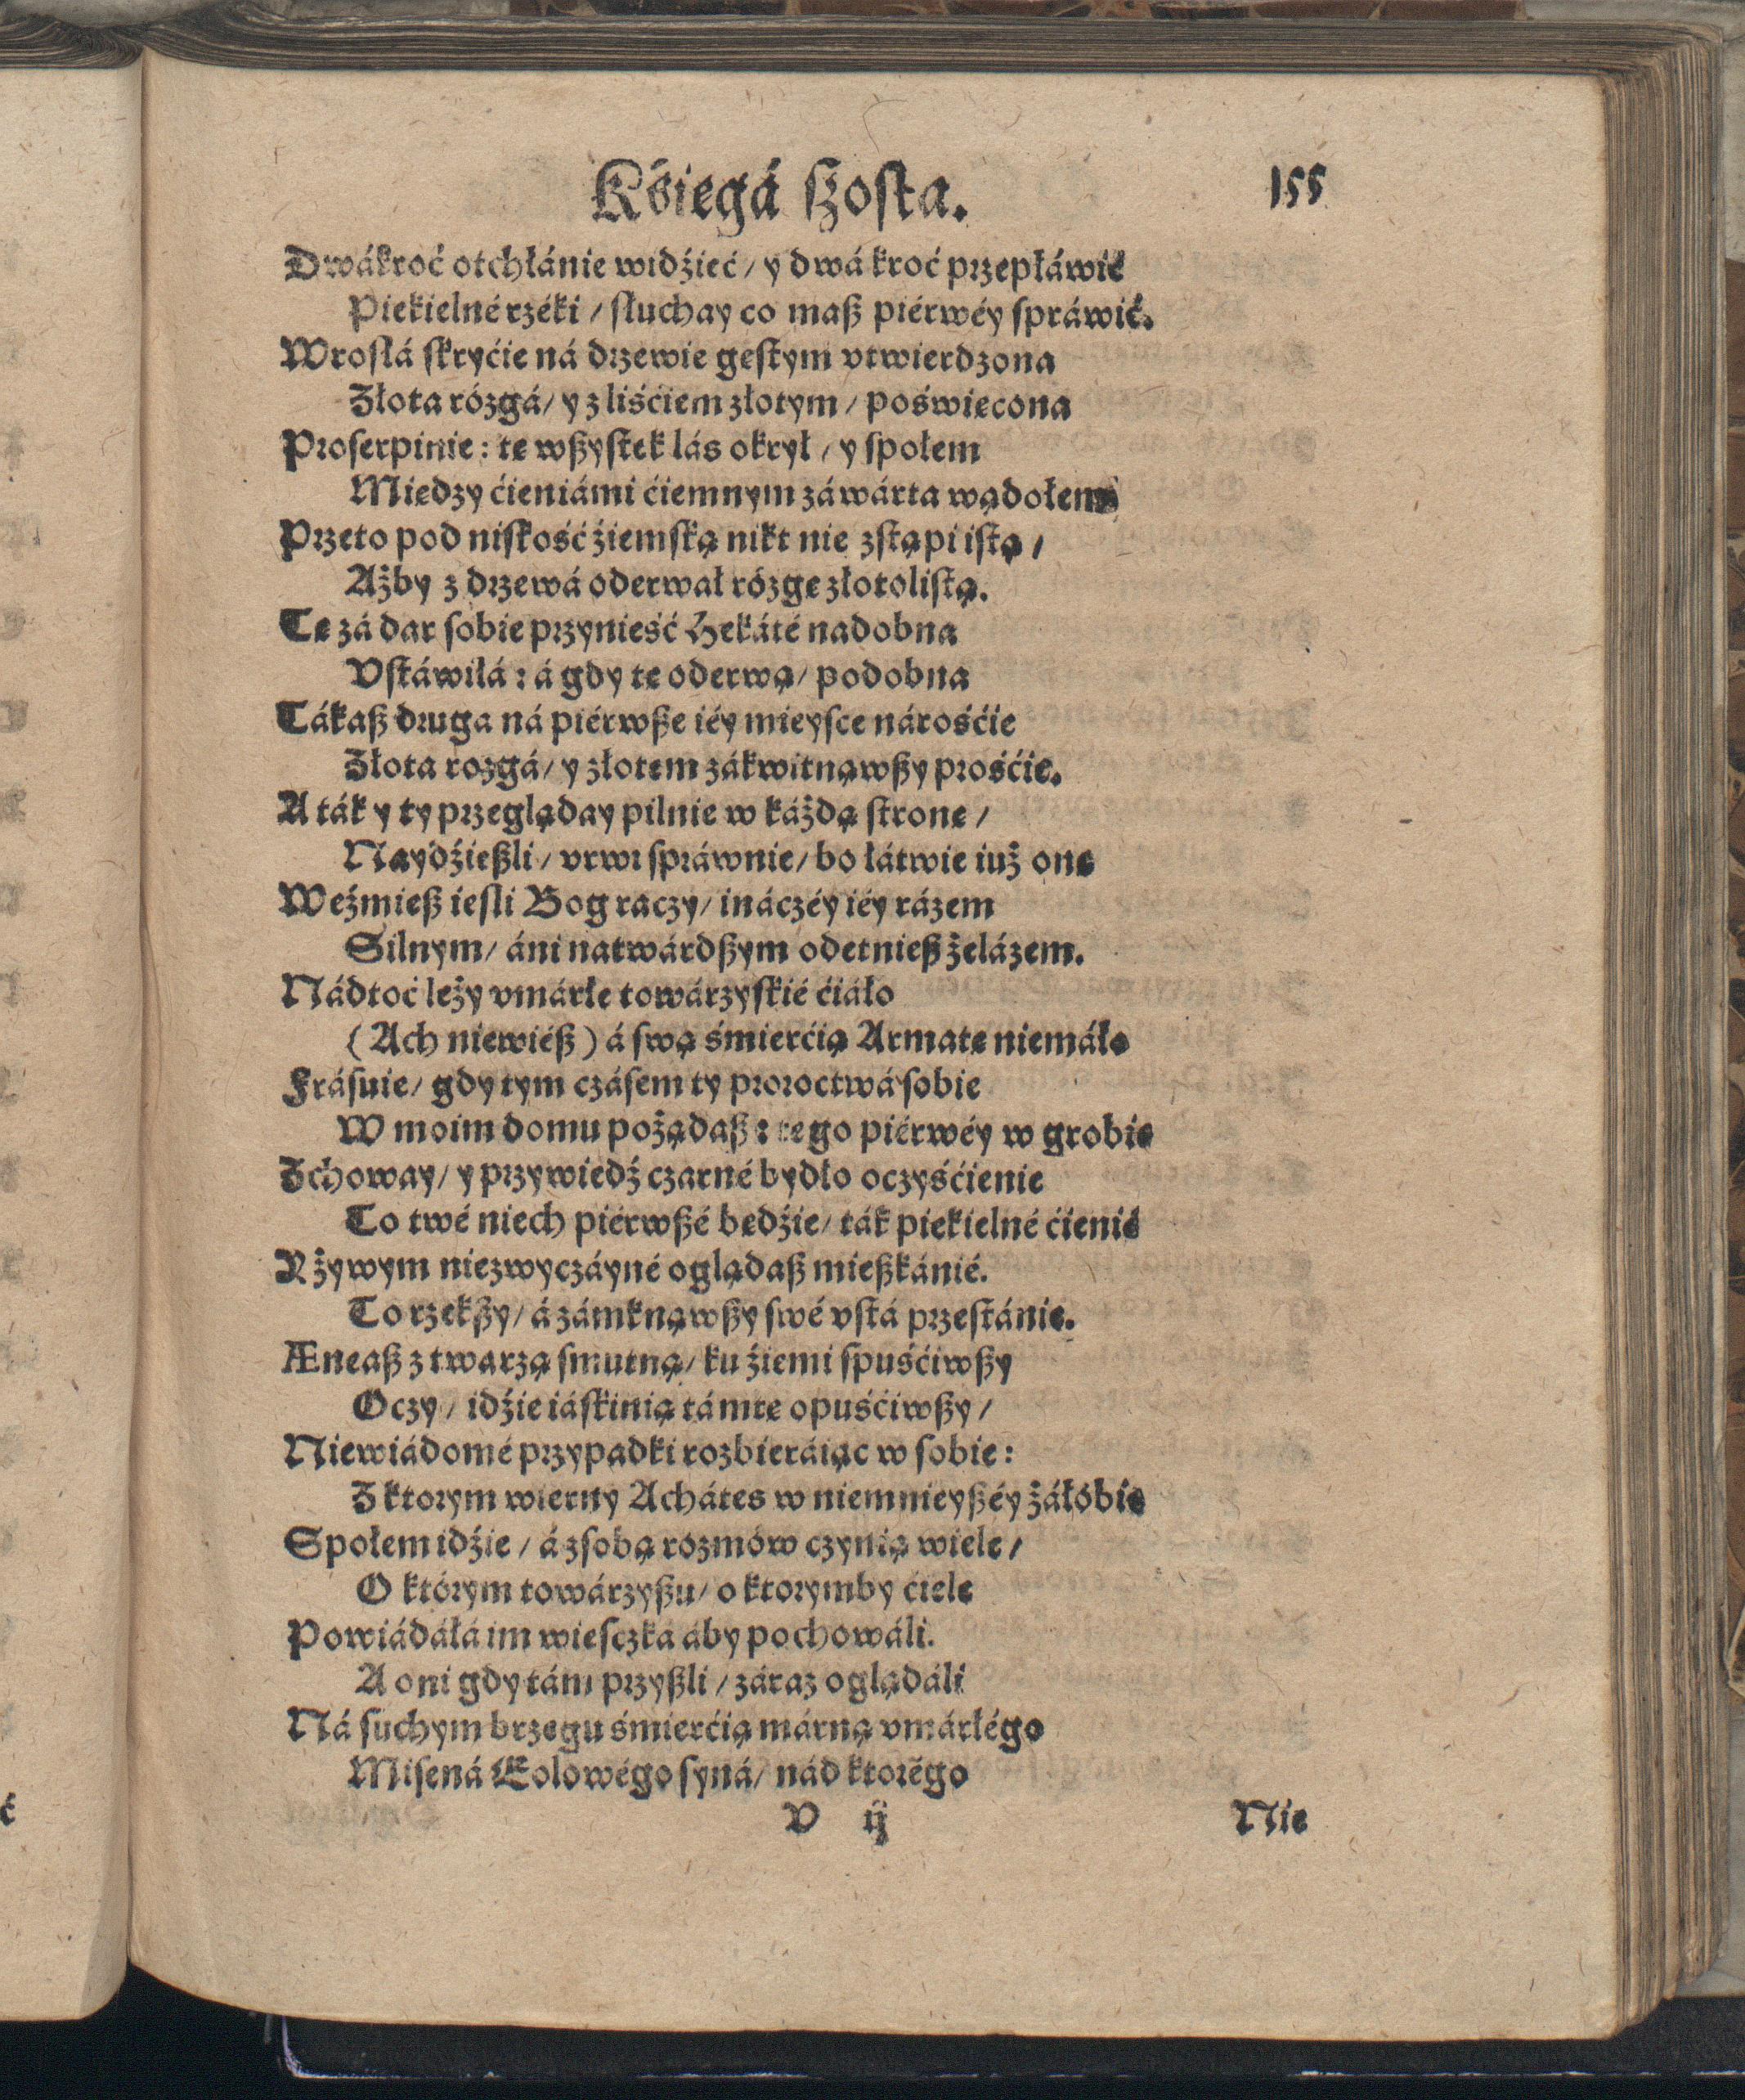 Kśiegá ſzoſta. 155
Dwákroć otchłánie widźieć / y dwá kroć przepłáwić
Piekielné rzéki / ſłuchay co maß piérwéy ſpráwić.
Wroſłá ſkryćie ná drzewie geſtym vtwierdzona
Złota rózgá / y z liśćiem złotym / poświecona
Proſerpinie : te wßyſtek lás okrył / y ſpołem
Miedzy ćieniámi ćiemnym záwárta wądołem
Przeto pod niſkość źiemſką nikt nie zſtąpi iſtą /
Ażby z drzewá oderwał rózge złotoliſtą.
Te zá dar ſobie przynieść Hekáté nadobna
Vſtáwiłá : á gdy te oderwą / podobna
Tákaß druga ná piérwße iéy mieyſce národśćie
Złota rozgá / y złotem zákwitnąwßy prośćie.
A ták y ty przeglądáy pilnie w káżdą ſtrone /
Naydźießli / vrwi ſpráwnie / bo łátwie iuż one
Weźmieß ieſli Bog raczy / ináczéy iéy rázem
Silnym / áni natwárdßym odetnieß żelázem.
Nádtoć leży vmárłe towárzyſkié ćiáło
(Ach niewiéß) á ſwą śmierćią Armate niemáło
Fráſuie / gdy tym czáſem ty proroctwá ſobie
W moim domu pożądaß : tego piérwéy w grobie
Zchoway / y przywiedź czarné bydło oczyśćienie
To twé niech piérwßé bedźie / ták piekielné ćienié
Y żywym niezwyczáyné oglądaß mießkánié.
To rzekßy / á zámknąwßy ſwé vſtá przeſtánie.
Æneaß z twarzą ſmutną / ku źiemi ſpuśćiwßy
Oczy / idźie iáſkinią támte opuśćiwßy /
Niewiádomé przypadki rozbieráiąc w ſobie :
Z ktorym wierny Achátes w niemnieyßéy żáłóbie
Społem idźie / á z ſobą rozmów czynią wiele /
O którym towárzyßu / o ktorymby ćiele
Powiádáłá im wieſczká áby pochowáli.
A oni gdy tám przyßli / záraz oglądáli
Ná ſuchym brzegu śmierćią márną vmárłégo
Miſená Eolowégo ſyná / nád ktorégo
V ij Nie